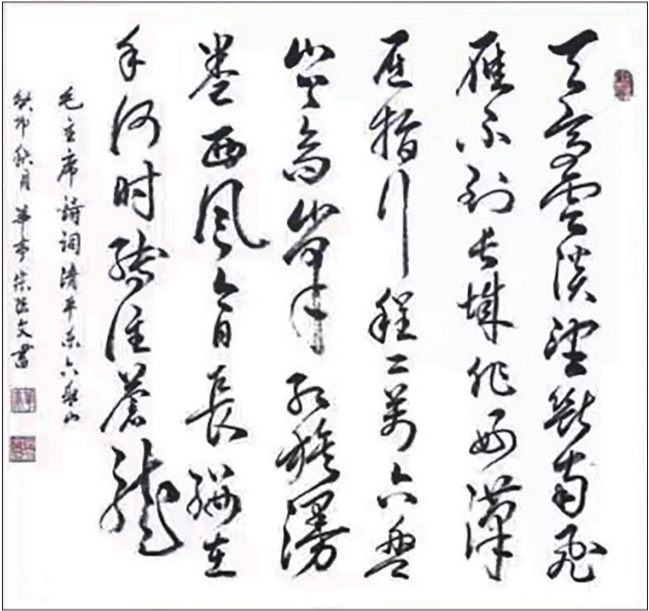 天高雲淡望斷南飛
雁不到長城非好漢
屈指行程二萬六盤
山上高峰紅旗漫
卷西風今日長纓在
手何时縛住蒼龍
毛主席詩詞清平乐六盤山
癸卯秋月 文書